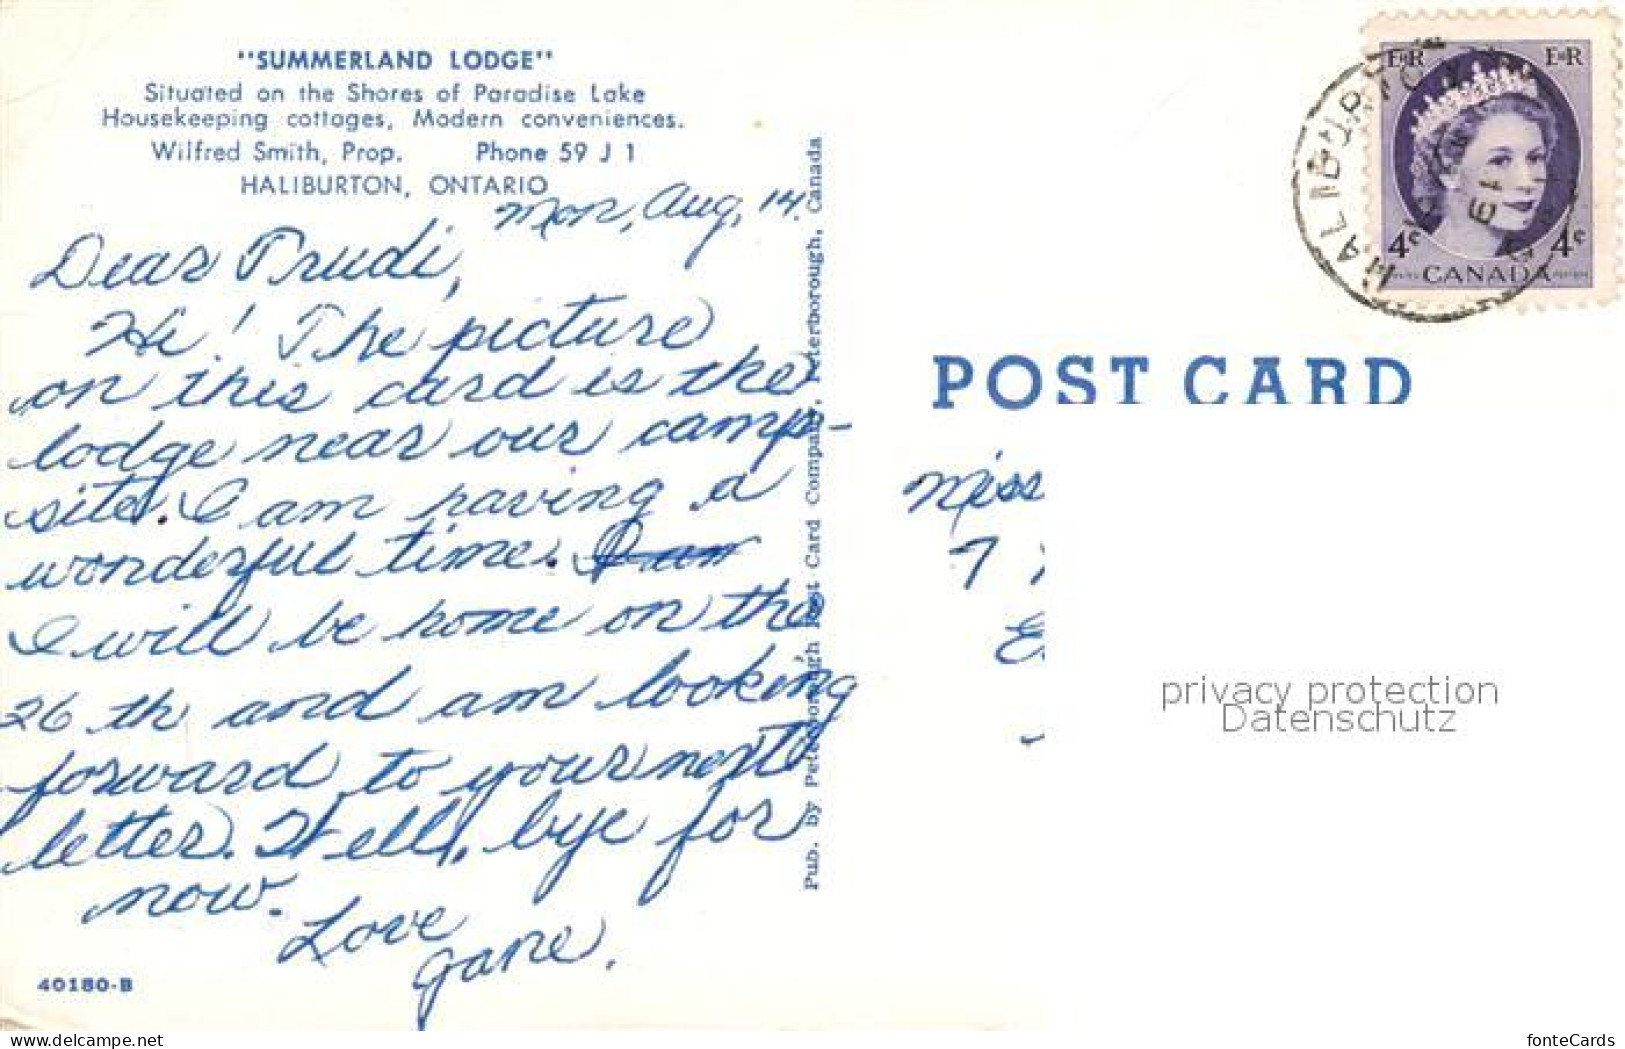 "SUMMERLAND LODGE"
Situated on the Shores of Paradise Lake
Housekeeping cottages, Modern conveniences.
Wilfred Smith, Prop. Phone 59 J 1
HALIBURTON, ONTARIO
Mon, Aug, 14.
Dear Trudi,
Hi! The picture
on this card is the
lodge near our camp-
site. I am having a
wonderful time.
I will be home on the
26 th and am looking
forward to your next
letter. Well, bye for
now.
Love
Jane.
40180-B
Pub. by Peterborough Post Card Company, Peterborough, Canada
E II R E II R
4¢ 4¢
CANADA
HALIBURTON
POST CARD
Miss
7
E
privacy protection
Datenschutz
www.delcampe.net
fonteCards